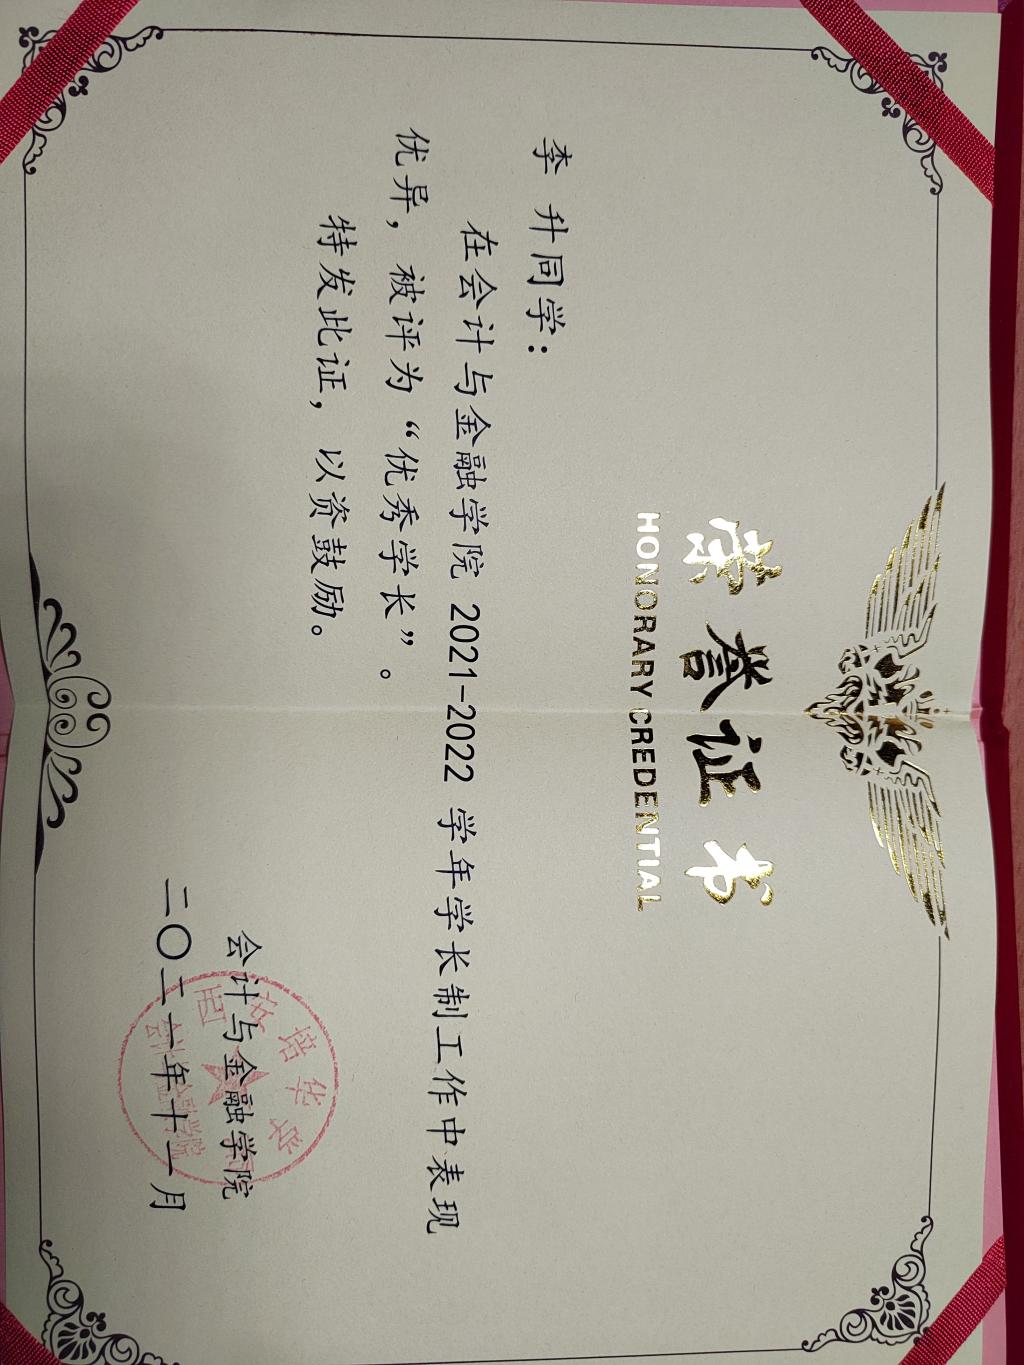 荣誉证书
HONORARY CREDENTIAL
李 升同学：
在会计与金融学院 2021-2022 学年学长制工作中表现
优异，被评为“优秀学长”。
特发此证，以资鼓励。
会计与金融学院
二〇二一年十二月
西安培华学院
会计与金融学院